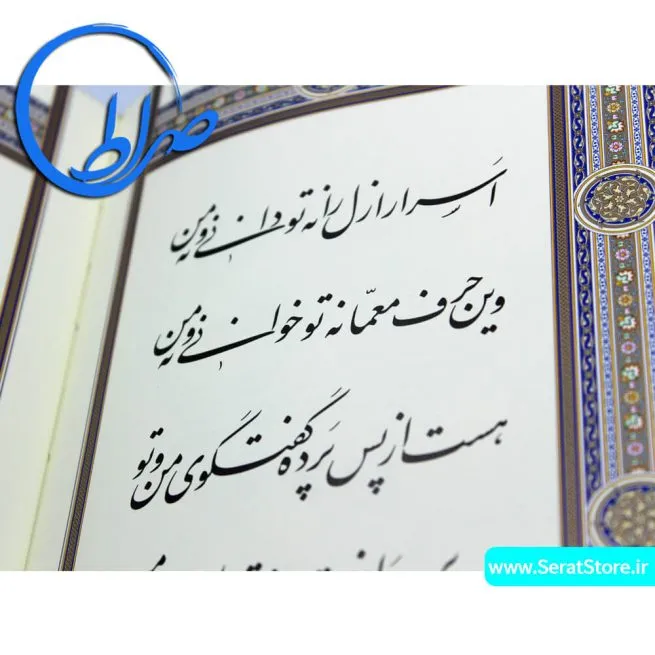 صراط
اسرار ازل را نه تو دانی و نه من
وین حرف معمّا نه تو خوانی و نه من
هست از پس پَرده گفتگوی من و تو
www.SeratStore.ir